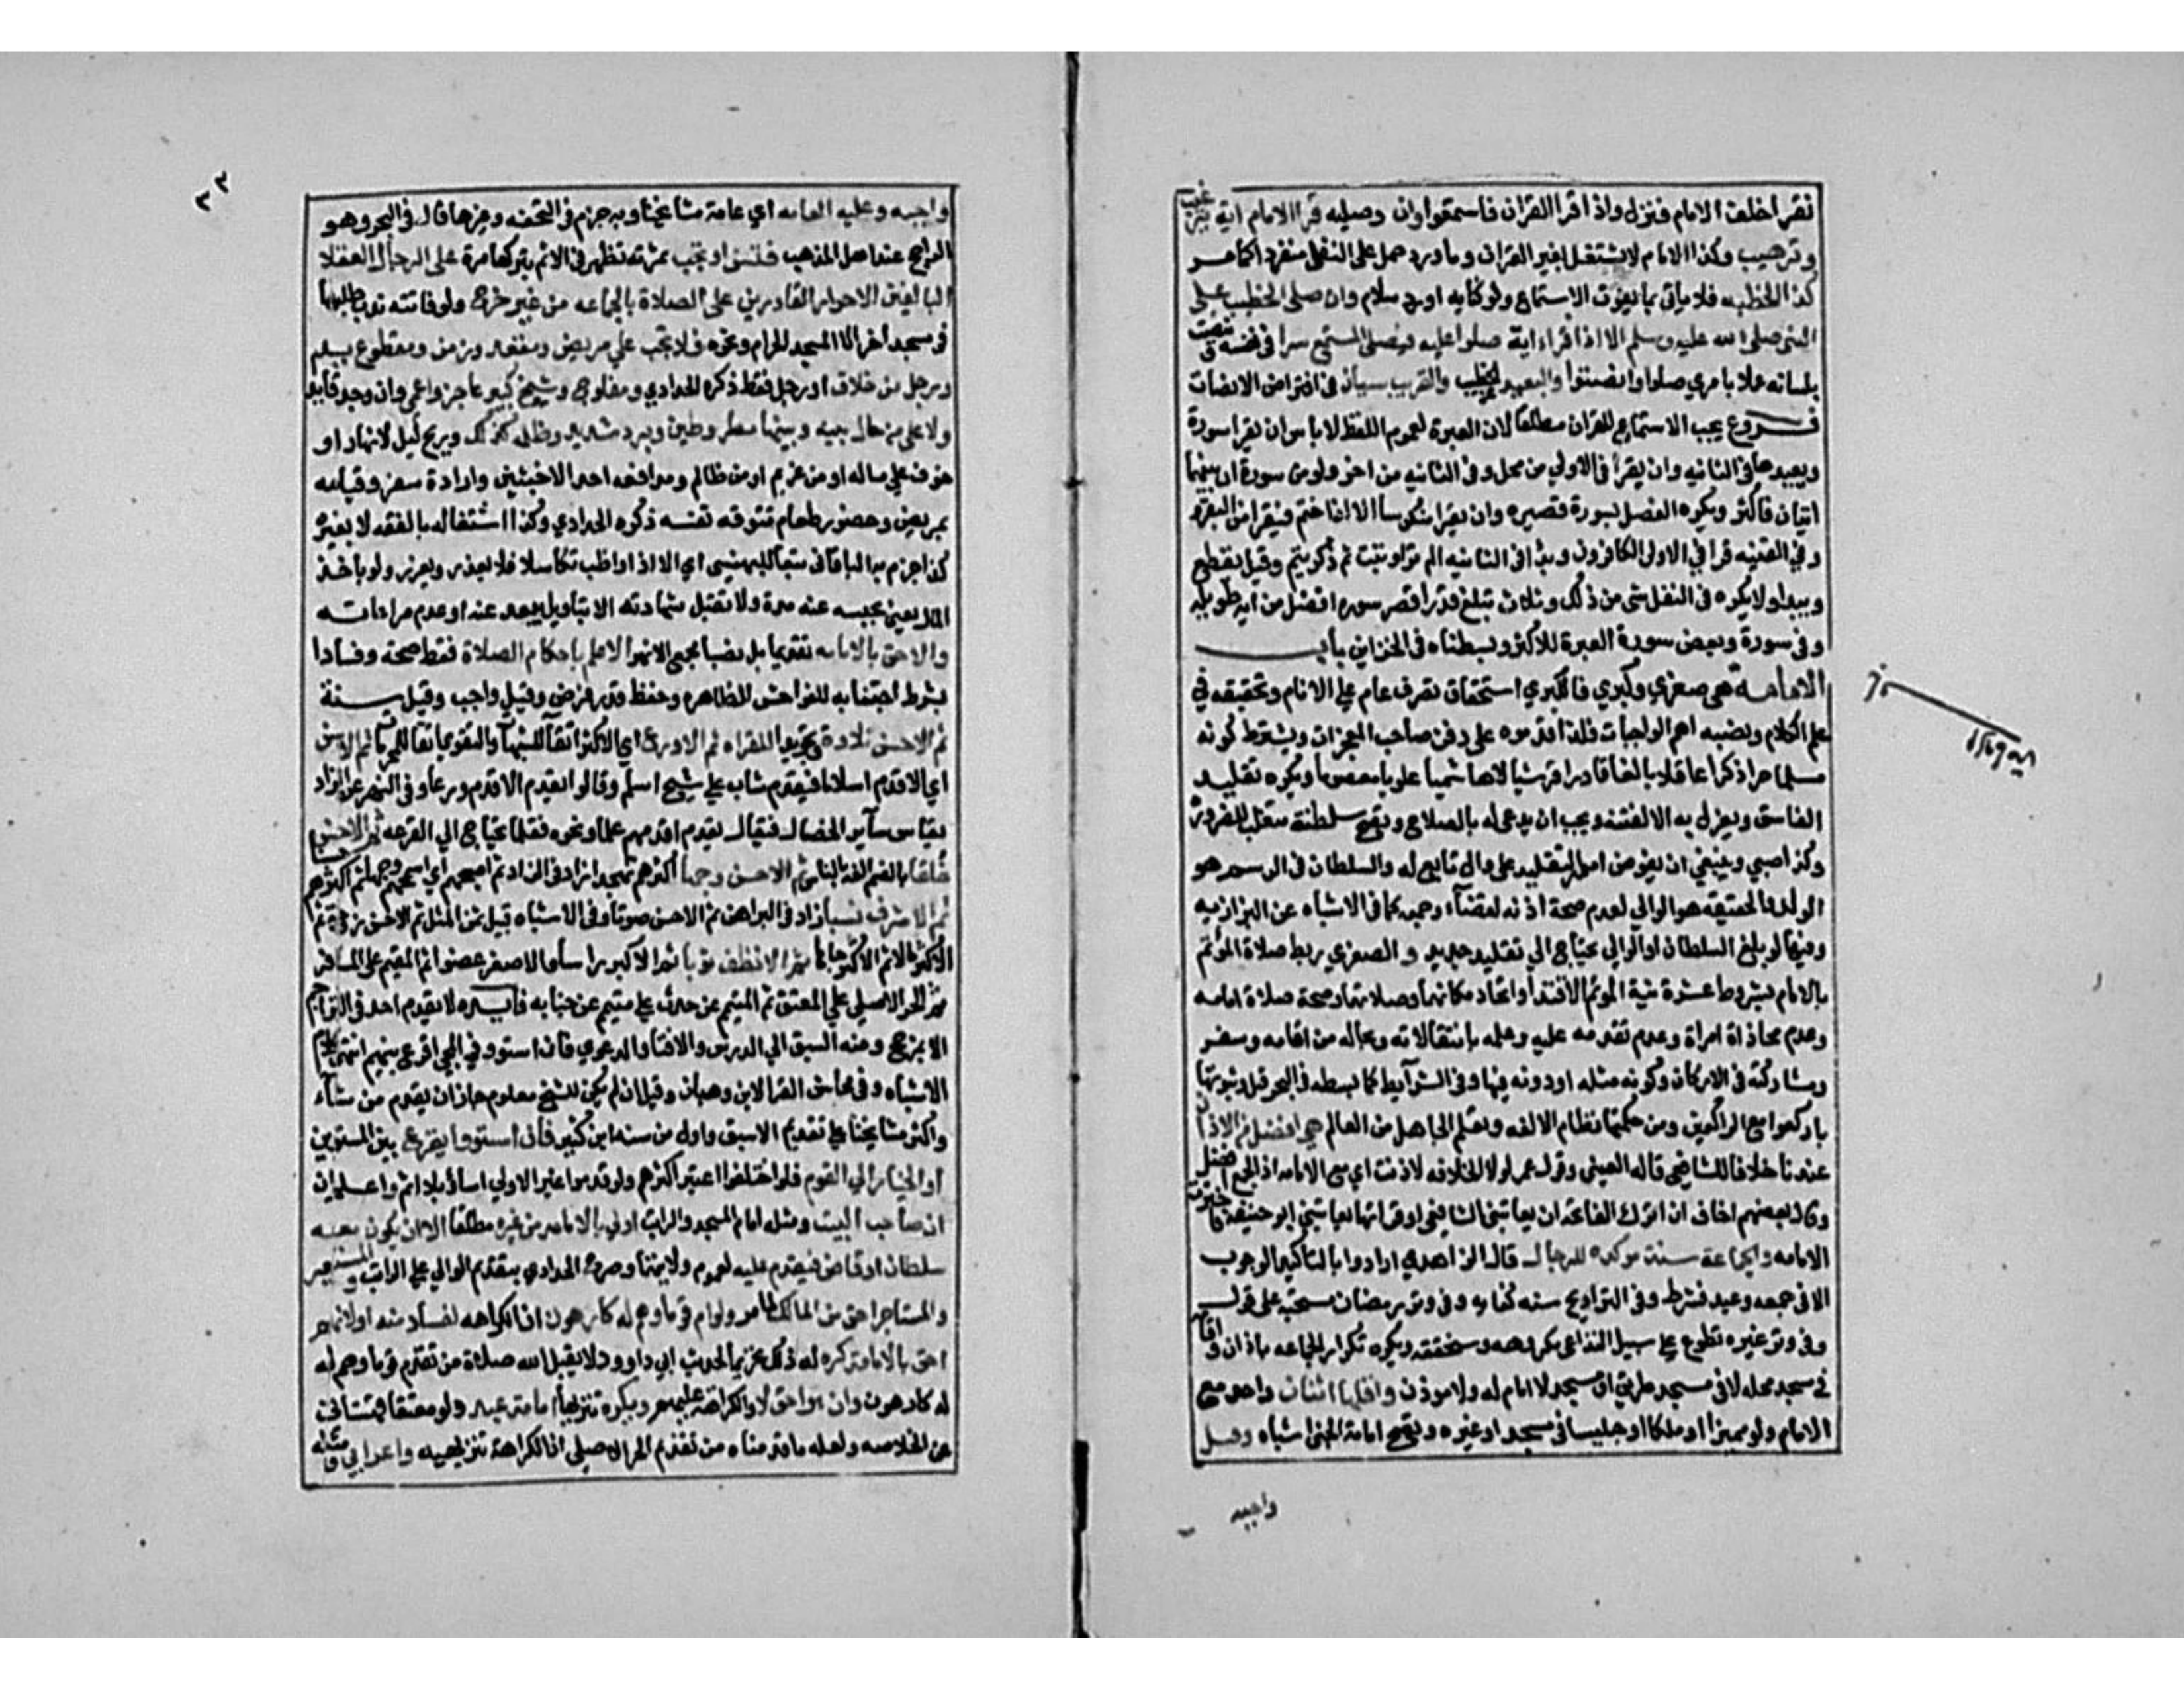 نقرا خلف الامام فنزل واذا قرا القران فاستمعوا وان وصليه قرا الامام اية ترغيب
وترهيب وكذا الامام لا يشتغل بغير القران وما ورد حمل على النفل منفردا كما مر
كذا الخطبه فلا ياتي بما يفوت الاستماع ولو كتابه او رد سلام وان صلى الخطيب على
النبي صلى الله عليه وسلم الا اذا قرا اية صلوا عليه فيصلي المستمع سرا في نفسه وينصت
بلسانه عملا بامري صلوا وانصتوا والبعيد عن الخطيب والقريب سيان في افتراض الانصات
فروع يجب الاستماع للقران مطلقا لان العبرة لعموم اللفظ لا باس ان يقرا سورة
ويعيدها في الثانيه وان يقرأ في الاولى من محل وفي الثانيه من اخر ولو من سورة ان بينهما
ايتان فاكثر ويكره الفصل بسورة قصيره وان يقرا منكوسا الا اذا ختم فيقرا من البقره
وفي القنيه قرا في الاولى الكافرون وفي الثانيه الم تر او تبت ثم ذكر يتم وقيل يقطع
ويبدا ولا يكره في النفل شي من ذلك وثلاث تبلغ قدر اقصر سوره افضل من ايه طويله
وفي سورة وبعض سورة العبرة للاكثر وبسطناه في الخزاين باب
الامامة هي صغرى وكبرى فالكبرى استحقاق تصرف عام على الانام وتحقيقه في
علم الكلام ونصبه اهم الواجبات فلذا قدموه على دفن صاحب المعجزات ويشترط كونه
مسلما حرا ذكرا عاقلا بالغا قادرا قرشيا لا هاشميا علويا معصوما ويكره تقليد
الفاسق ويعزل به الا لفتنه ويجب ان يدعى له بالصلاح وتصح سلطنة متغلب للضروره
وكذا صبي وينبغي ان يفوض امور التقليد على وال تابع له والسلطان في الرسم هو
الولد وفي الحقيقه هو الوالي لعدم صحة اذنه لقضآء وجمعه كما في الاشباه عن البزازيه
وفيها لو بلغ السلطان او الوالي يحتاج الى تقليد جديد والصغرى ربط صلاة المؤتم
بالامام بشروط عشرة نية المؤتم الاقتدآ واتحاد مكانهما وصلاتهما وصحة صلاة امامه
وعدم محاذاة امراة وعدم تقدمه عليه وعلمه بانتقالاته وبحاله من اقامه وسفر
ومشاركته في الاركان وكونه مثله او دونه فيها وفي الشرآيط كما بسطه في البحر قيل وثبوتها
باركعوا مع الراكعين ومن حكمتها نظام الالفه وتعلم الجاهل من العالم هي افضل من الاذان
عندنا خلافا للشافعي قاله العيني وقول عمر لولا الخلافه لاذنت اي مع الامامه اذ الجمع افضل
وقال بعضهم اخاف ان اترك الفاتحه ان يعاتبني الشافعي او قراتها يعاتبني ابو حنيفة فاخترت
الامامه والجماعة سنة موكده للرجال قال الزاهدي ارادوا بالتاكيد الوجوب
الا في جمعه وعيد فشرط وفي التراويح سنه كفايه وفي وتر رمضان مستحبة على قول
وفي وتر غيره تطوع على سبيل التداعي مكروهه وسنحققه ويكره تكرار الجماعه باذان واقامه
في مسجد محله لا في مسجد طريق او مسجد لا امام له ولا موذن واقلها اثنان واحد مع
الامام ولو مميزا او ملكا او جنيا في مسجد او غيره وتصح امامة الجني اشباه وقيل
واجبه
٣٣
واجبه وعليه العامه اي عامة مشايخنا وبه جزم في التحفه وغيرها قال في البحر وهو
الراجح عند اهل المذهب فتسن او تجب ثمرته تظهر في الاثم بتركها مرة على الرجال العقلا
البالغين الاحرار القادرين على الصلاة بالجماعه من غير حرج ولو فاتته ندب طلبها
في مسجد اخر الا المسجد الحرام ونحوه فلا تجب على مريض ومقعد وزمن ومقطوع يد
ورجل من خلاف او رجل فقط ذكره الحدادي ومفلوج وشيخ كبير عاجز واعمى وان وجد قايدا
ولا على من حال بينه وبينها مطر وطين وبرد شديد وظلمه كذلك وريح ليل لا نهار او
خوف على ماله او من غريم او من ظالم ومدافعه احد الاخبثين وارادة سفر وقيامه
بمريض وحضور طعام تتوقه نفسه ذكره الحدادي وكذا اشتغاله بالفقه لا بغيره
كذا جزم به الباقاني تبعا للبهنسي اي الا اذا واظب تكاسلا فلا يعذر ويعزر ولو باخذ
المال يعني بحبسه عنه مدة ولا تقبل شهادته الا بتاويل بدعه امام او عدم مراعاته
والاحق بالامامه تقديما بل نصبا مجمع الانهر الاعلم باحكام الصلاة فقط صحة وفسادا
بشرط اجتنابه للفواحش الظاهره وحفظ قدر فرض وقيل واجب وقيل سنة
ثم الاحسن تلاوة وتجويدا للقراه ثم الاورع اي الاكثر اتقآ للشبهات والتقوى اتقا المحرمات ثم الاسن
اي الاقدم اسلاما فيقدم شاب على شيخ اسلم وقالوا يقدم الاقدم ورعا وفي النهر عن الزاد
يقاس ساير الخصال فيقال يقدم اقدمهم علما ونحوه فقلما يحتاج الى القرعه ثم الاحسن
خلقا بالضم الفه بالناس ثم الاحسن وجها اكثرهم تهجدا زاد في الزاد ثم اصبحهم اي اسمحهم وجها ثم اكثرهم حسبا
ثم الاشرف نسبا زاد في البرهان ثم الاحسن صوتا وفي الاشباه قبيل ثمن المثل ثم الاحسن زوجة ثم
الاكثر مالا ثم الاكثر جاها ثم الانظف ثوبا ثم الاكبر راسا والاصغر عضوا ثم المقيم على المسافر
ثم الحر الاصلي على المعتق ثم المتيمم عن حدث على متيمم عن جنابه فايده لا يقدم احد في التزاحم
الا بمرجح ومنه السبق الى الدرس والافتا والدعوى فان استووا في المجي اقرع بينهم انتهى كلام
الاشباه وفي محاسن القرا لابن وهبان وقيل ان لم يكن للشيخ معلوم جاز ان يقدم من شآء
واكثر مشايخنا على تقديم الاسبق واول من سنه ابن كثير فان استووا يقرع بين المستويين
او الخيار الى القوم فلو اختلفوا اعتبر اكثرهم ولو قدموا غير الاولى اساؤا بلا اثم واعلم ان
ان صاحب البيت ومثله امام المسجد الراتب اولى بالامامه من غيره مطلقا الا ان يكون معه
سلطان او قاض فيقدم عليه لعموم ولايتهما وصرح الحدادي بتقديم الوالي على الراتب والمستعير
والمستاجر احق من المالك لما مر ولو ام قوما وهم له كارهون ان الكراهه لفساد فيه او لانهم
احق بالامامه كره له ذلك تحريما لحديث ابي داوود لا يقبل الله صلاة من تقدم قوما وهم له
له كارهون وان هو احق لا والكراهة عليهم ويكره تنزيها امامة عبد ولو معتقا قهستاني
عن الخلاصه ولعله ما قدمناه من تقدم الحر الاصلي اذ الكراهة تنزيهيه واعرابي ومثله